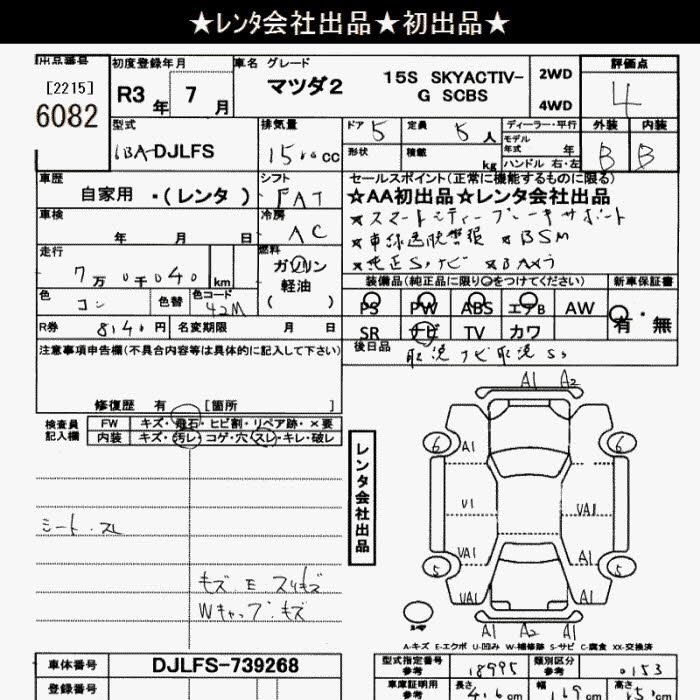 ★レンタ会社出品★初出品★
出品番号
[2215]
6082
初度登録年月
R3年 7月
車名 グレード
マツダ2 15S SKYACTIV-
G SCBS
2WD
4WD
評価点
4
外装 内装
B B
型式
DJLFS
排気量
1500cc
ドア 5
形状
定員 5人
積載 kg
ディーラー・平行
モデル
年式 年
ハンドル 右・左
車歴
自家用 ・(レンタ )
シフト
FAT
車検
年 月 日
冷房
AC
走行
7万0千040 km
燃料
ガソリン
軽油
( )
色
コン
色替
色コード
42M
R券 8140円
名変期限 月 日
セールスポイント(正常に機能するものに限る)
☆AA初出品☆レンタ会社出品
★スマートシティーブレーキサポート
★車線逸脱警報 ★BSM
★純正Sナビ ★Bカメラ
装備品(純正品に限り○をつけてください)
PS PW ABS エアB AW
SR ナビ TV カワ
新車保証書
有・無
後日品
取説 ナビ取説 S
注意事項申告欄(不具合内容等は具体的に記入して下さい)
修復歴 有 [箇所 ]
検査員
記入欄
FW キズ・飛石・ヒビ割・リペア跡・×要
内装 キズ・汚レ・コゲ・穴・スレ・キレ・破レ
シート・スレ
キズ E スリキズ
Wキャップ・キズ
レンタ会社出品
A1 A2
6 6
A1
U1 VA1
VA1 A1
5 5
VA1 A1
A1 A2 A1
A-キズ E-エクボ U-凹み W-補修跡 S-サビ C-腐食 XX-交換済
車体番号 DJLFS-739268
登録番号
型式指定番号
参考
18995
類別区分
参考
0153
車庫証明用
参考
長さ
cm
幅
169cm
高さ
cm